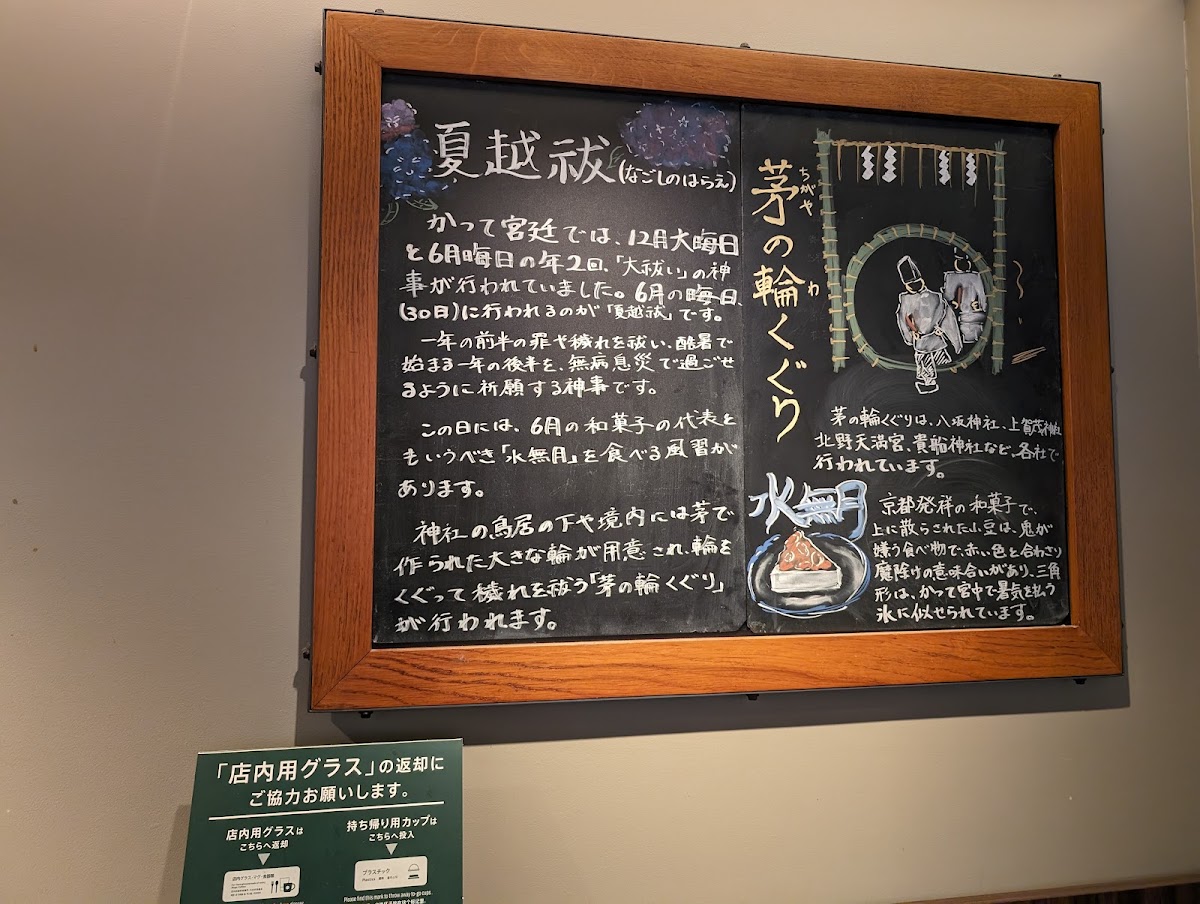 夏越祓(なごしのはらえ)
かつて宮廷では、12月大晦日
と6月晦日の年2回、「大祓い」の神
事が行われていました。6月の晦日、
(30日)に行われるのが「夏越祓」です。
一年の前半の罪や穢れを祓い、酷暑で
始まる一年の後半を、無病息災で過ごせ
るように祈願する神事です。
この日には、6月の和菓子の代表と
もいうべき「水無月」を食べる風習が
あります。
神社の鳥居の下や境内には茅で
作られた大きな輪が用意され、輪を
くぐって穢れを祓う「茅の輪くぐり」
が行われます。
茅の輪くぐり
ちがや
わ
茅の輪くぐりは、八坂神社、上賀茂神社
北野天満宮、貴船神社など、各社で
行われています。
水無月
京都発祥の和菓子で、
上に散らされた小豆は、鬼が
嫌う食べ物で、赤い色と合わさり
魔除けの意味合いがあり、三角
形は、かつて宮中で暑気を払う
氷に似せられています。
「店内用グラス」の返却に
ご協力お願いします。
店内用グラスは
こちらへ返却
持ち帰り用カップは
こちらへ投入
プラスチック
Please find this mark to throw away to-go cups.